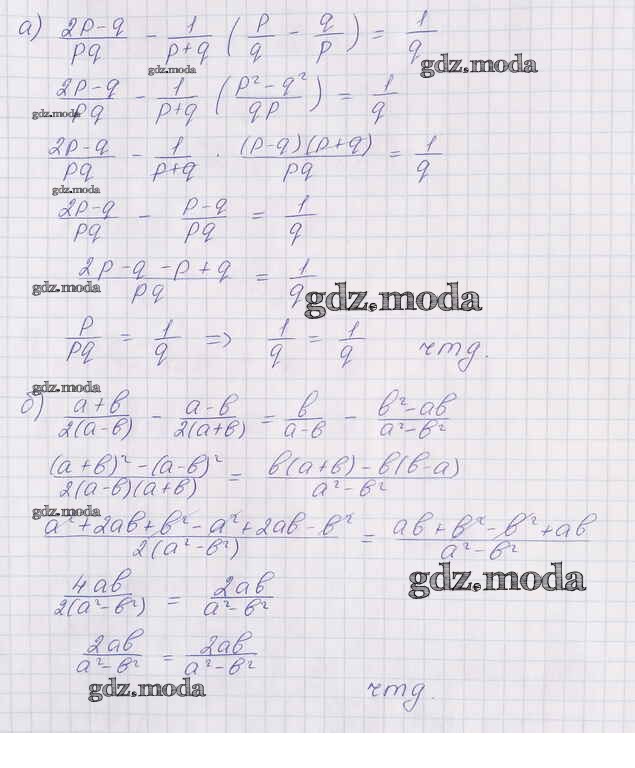 а) (2p-q)/(pq) - 1/(p+q) (p/q - q/p) = 1/q
gdz.moda
gdz.moda
(2p-q)/(pq) - 1/(p+q) ((p²-q²)/(qp)) = 1/q
gdz.moda
(2p-q)/(pq) - 1/(p+q) · ((p-q)(p+q))/(pq) = 1/q
gdz.moda
(2p-q)/(pq) - (p-q)/(pq) = 1/q
(2p-q-p+q)/(pq) = 1/q
gdz.moda
gdz.moda
p/(pq) = 1/q => 1/q = 1/q чтд.
gdz.moda
б) (a+b)/(2(a-b)) - (a-b)/(2(a+b)) = b/(a-b) - (b²-ab)/(a²-b²)
((a+b)²-(a-b)²)/(2(a-b)(a+b)) = (b(a+b)-b(b-a))/(a²-b²)
gdz.moda
(a²+2ab+b²-a²+2ab-b²)/(2(a²-b²)) = (ab+b²-b²+ab)/(a²-b²)
gdz.moda
4ab/(2(a²-b²)) = 2ab/(a²-b²)
2ab/(a²-b²) = 2ab/(a²-b²)
gdz.moda
чтд.